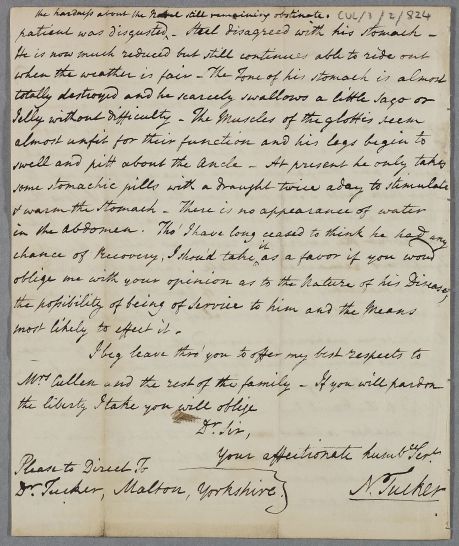 the hardness about the Navel still remaining obstinate. CUL/1/2/824
patient was disgusted, - Steel disagreed with his stomach -
He is now much reduced but still continues able to ride out
when the weather is fair - The Tone of his stomach is almost
totally destroyed and he scarcely swallows a little Sago or
Jelly without difficulty - The Muscles of the glottis seem
almost unfit for their function and his legs begin to
swell and pitt about the Ancle - At present he only takes
some stomachic pills with a draught twice a day to stimulate
& warm the stomach - There is no appearance of water
in the Abdomen. Tho' I have long ceased to think he had any
chance of Recovery, I shoud take it as a favor if you wou'd
oblige me with your opinion as to the Nature of his Disease,
the possibility of being of Service to him and the Means
most likely to effect it -
I beg leave thro' you to offer my best respects to
Mrs Cullen and the rest of the family - If you will pardon
the liberty I take you will oblige
Dr. Sir,
Your affectionate humb. Sert.
Please to Direct To
Dr. Tucker, Malton, Yorkshire.} N. Tucker